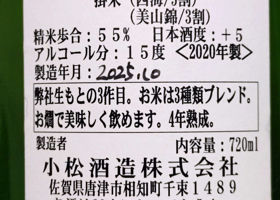 掛米（西海/3割）
（美山錦/3割）
精米歩合：55% 日本酒度：+5
アルコール分：15度 <2020年製>
製造年月：2025.10
弊社生もとの3作目。お米は3種類ブレンド。
お燗で美味しく飲めます。4年熟成。
製造者 内容量：720ml
小松酒造株式会社
佐賀県唐津市相知町千束1489